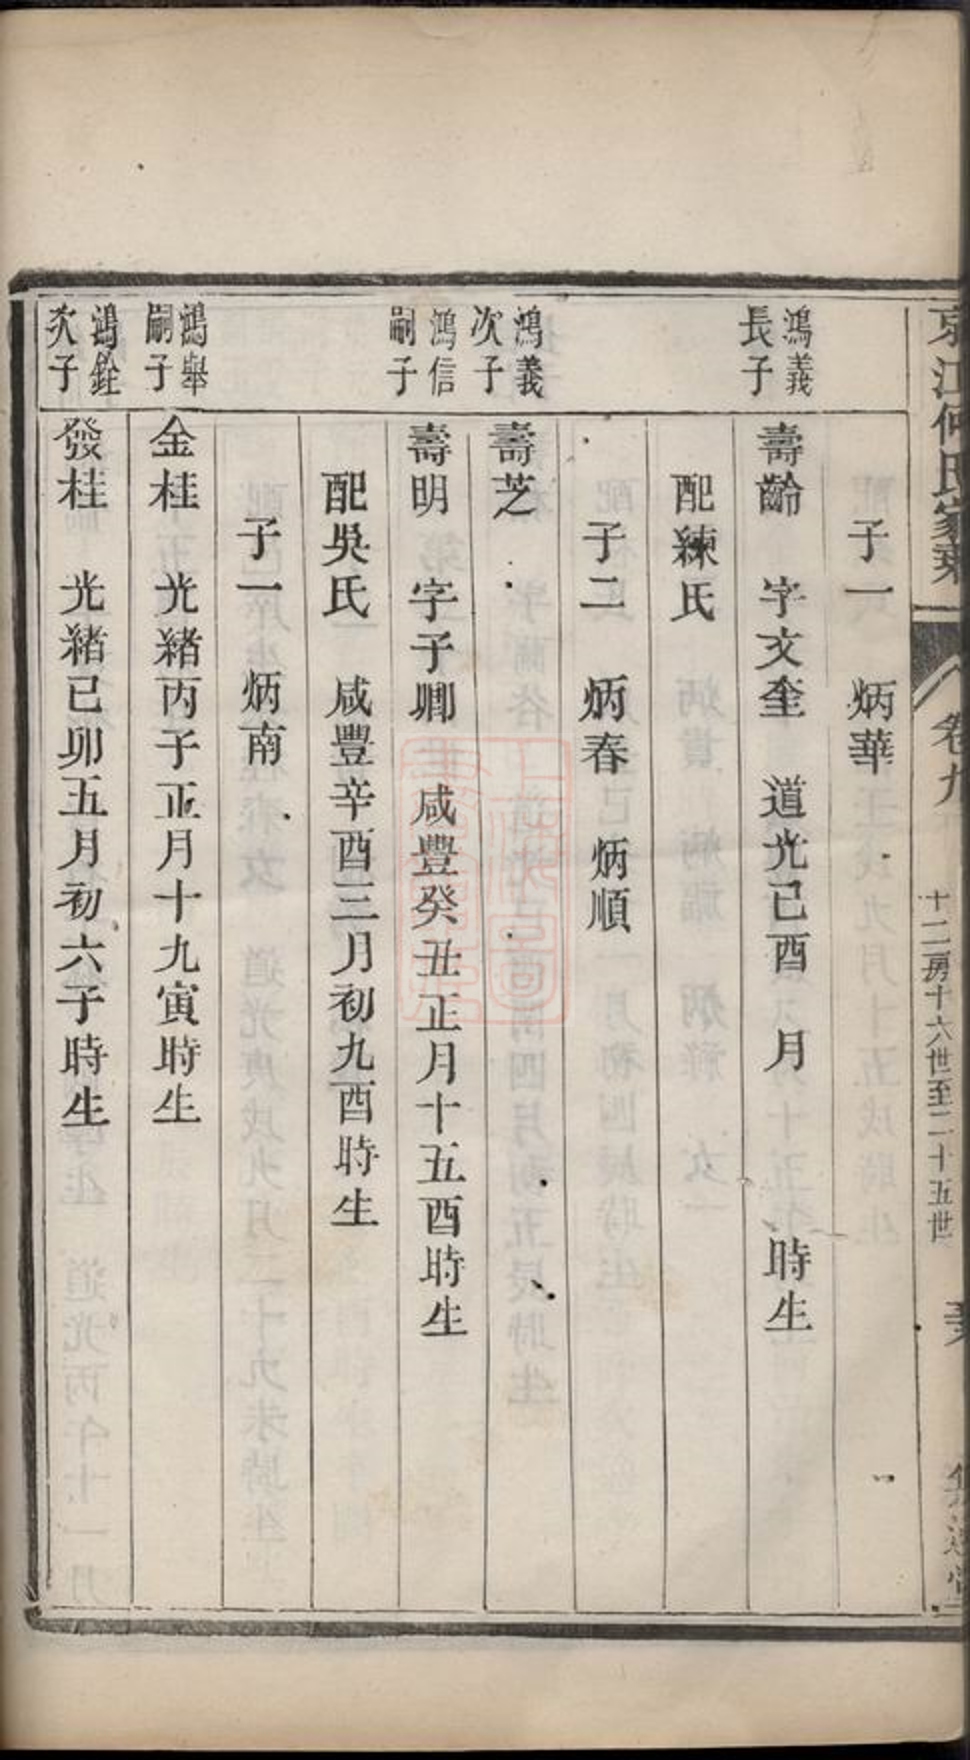 京江何氏家乘
卷九
十二房十六世至二十五世
子一 炳華
鴻義
長子
壽齡 字文奎 道光己酉 月 時生
配練氏
子二 炳春 炳順
鴻義
次子
壽芝
鴻信
嗣子
壽明 字子卿 咸豐癸丑正月十五酉時生
配吳氏 咸豐辛酉三月初九酉時生
子一 炳南
鴻舉
嗣子
金桂 光緒丙子正月十九寅時生
鴻銓
次子
發桂 光緒己卯五月初六子時生